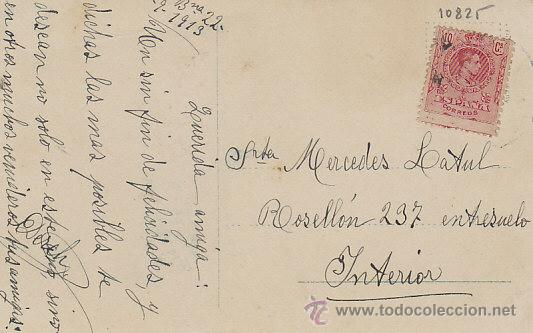 10825
Bna 22
9-1913
Querida amiga:
Un sin fin de felicidades y
dichas las mas posibles te
desean no solo en este dia sino
en otros muchos venideros tus amigas:
10 Cs
ESPAÑA
CORREOS
Srta Mercedes Latul
Rosellón 237 entresuelo
Interior
www.todocoleccion.net